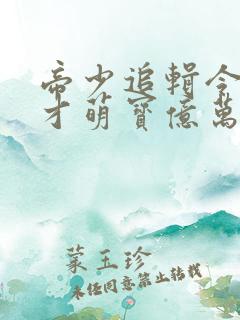 帝少追輯令
才萌寶億萬
葉玉珍
未经同意禁止转载